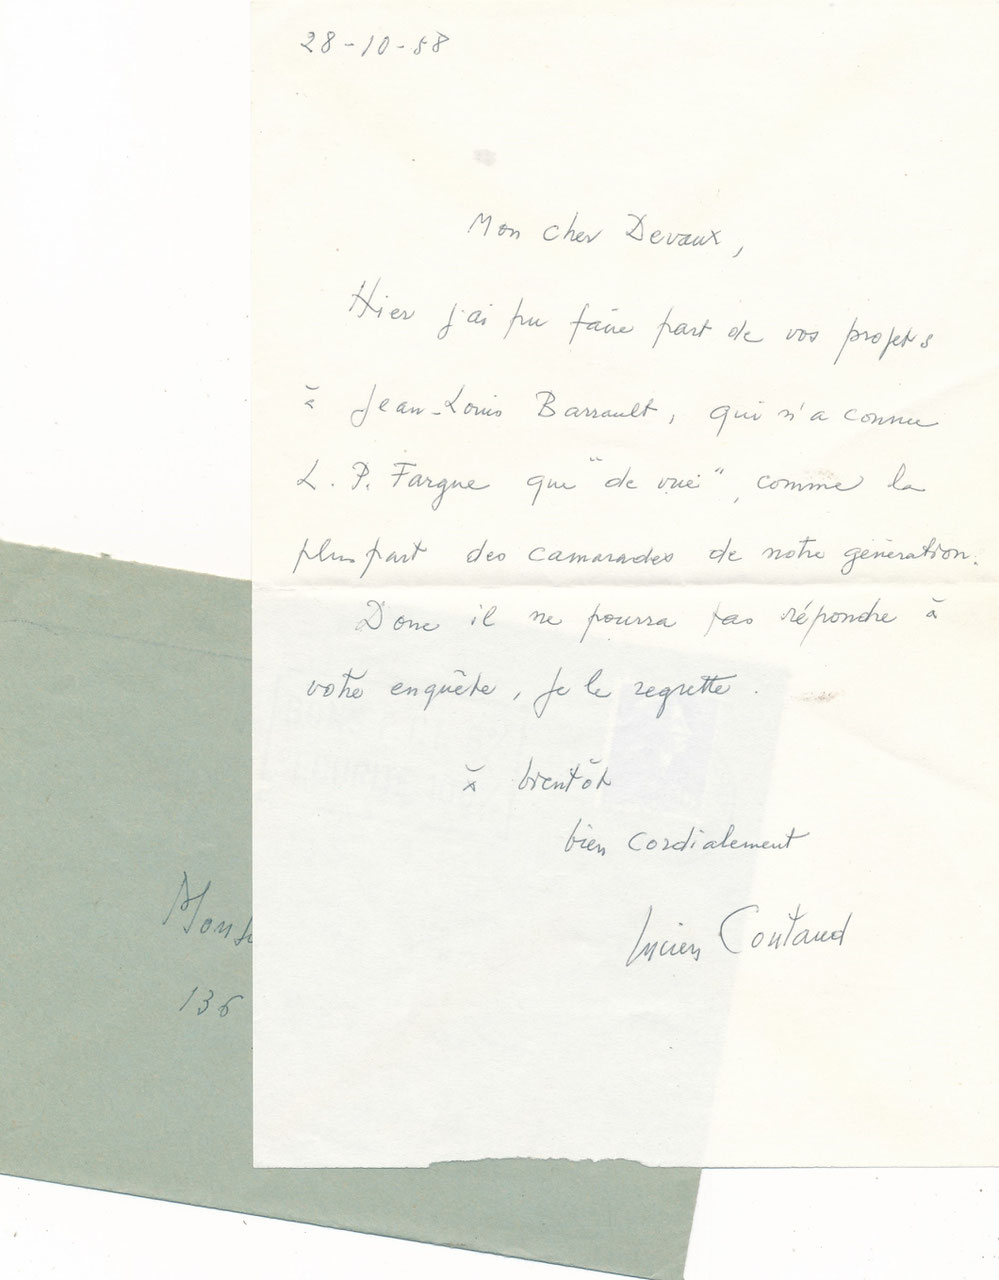 28-10-58
Mon cher Devaux,
Hier j'ai pu faire part de vos projets
à Jean-Louis Barrault, qui n'a connu
L. P. Fargue que "de vue", comme la
plus part des camarades de notre génération.
Donc il ne pourra pas répondre à
votre enquête, je le regrette.
à bientôt
bien cordialement
Lucien Coutaud
136